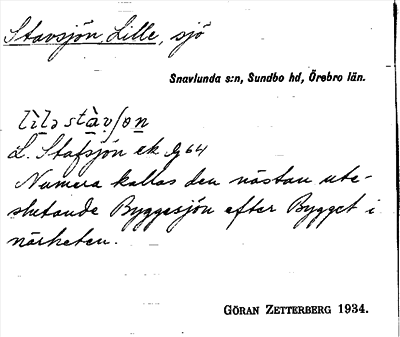 Stavsjön, Lille, sjö
Snavlunda s:n, Sundbo hd, Örebro län.
lìlə stàvʃøn
L. Stafsjön ek. G 64
Numera kallas den nästan ute-
slutande Byggesjön efter Bygget i
närheten.
GÖRAN ZETTERBERG 1934.